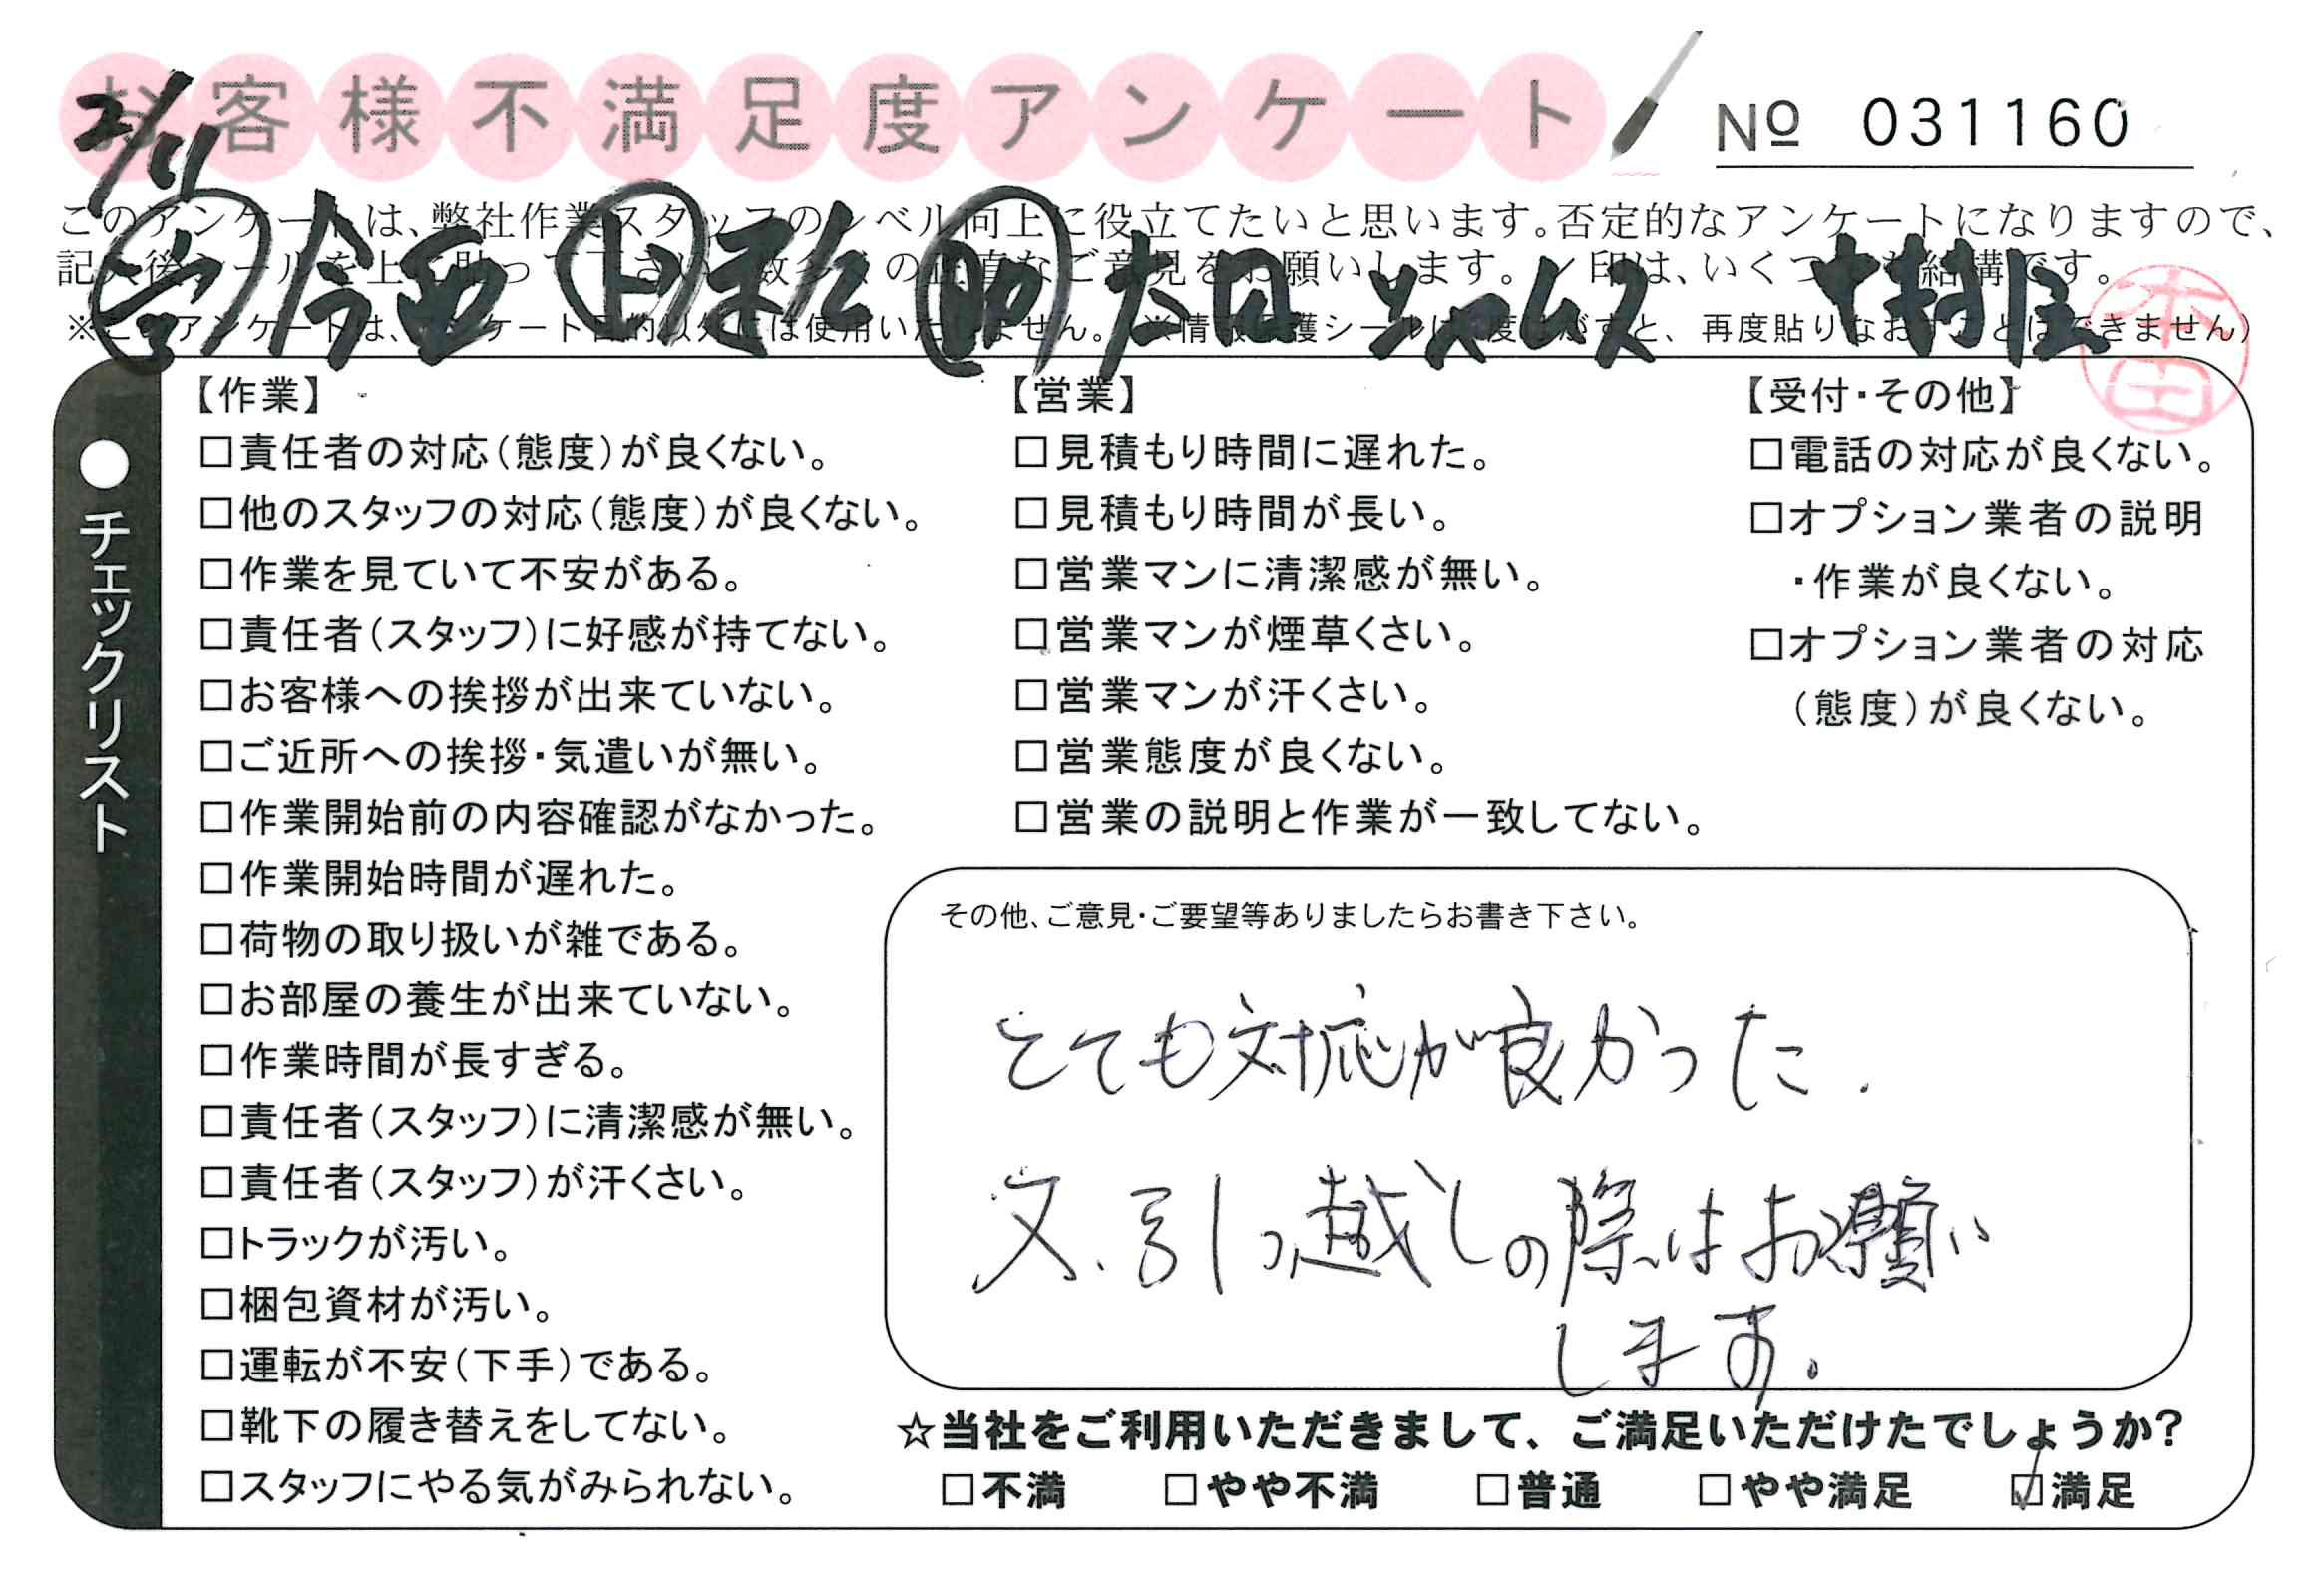 お客様不満足度アンケート
№ 031160
2/11
このアンケートは、弊社作業スタッフのレベル向上に役立てたいと思います。否定的なアンケートになりますので、
記入後シールを上に貼って下さい。数多くの正直なご意見をお願いします。✓印は、いくつでも結構です。
※このアンケートは、アンケート目的以外には使用いたしません。(※情報保護シールは1度はがすと、再度貼りなおすことはできません)
営 今西 ト 助 太田 ジェームス
本田
●チェックリスト
【作業】
□責任者の対応(態度)が良くない。
□他のスタッフの対応(態度)が良くない。
□作業を見ていて不安がある。
□責任者(スタッフ)に好感が持てない。
□お客様への挨拶が出来ていない。
□ご近所への挨拶・気遣いが無い。
□作業開始前の内容確認がなかった。
□作業開始時間が遅れた。
□荷物の取り扱いが雑である。
□お部屋の養生が出来ていない。
□作業時間が長すぎる。
□責任者(スタッフ)に清潔感が無い。
□責任者(スタッフ)が汗くさい。
□トラックが汚い。
□梱包資材が汚い。
□運転が不安(下手)である。
□靴下の履き替えをしてない。
□スタッフにやる気がみられない。
【営業】
□見積もり時間に遅れた。
□見積もり時間が長い。
□営業マンに清潔感が無い。
□営業マンが煙草くさい。
□営業マンが汗くさい。
□営業態度が良くない。
□営業の説明と作業が一致してない。
【受付・その他】
□電話の対応が良くない。
□オプション業者の説明
・作業が良くない。
□オプション業者の対応
(態度)が良くない。
その他、ご意見・ご要望等ありましたらお書き下さい。
とても対応が良かった.
又、引っ越しの際はお願い
します。
☆当社をご利用いただきまして、ご満足いただけたでしょうか?
□不満 □やや不満 □普通 □やや満足 ☑満足